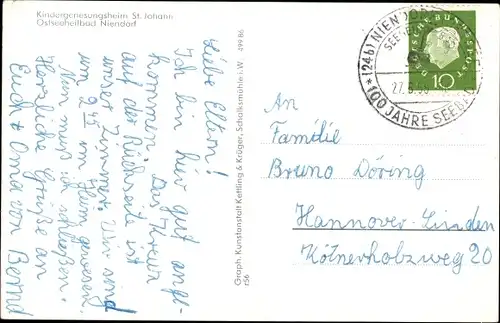 Kindergenesungsheim St. Johann
Ostseeheilbad Niendorf
Liebe Eltern!
Ich bin hier gut ange-
kommen. Das Kreuz
auf der Rückseite ist
unser Zimmer. Wir sind
um 9 45 im Heim gewesen.
Nun muß ich schließen.
Herzliche Grüße an
Euch + Oma von Bernd
Graph. Kunstanstalt Kettling & Krüger, Schalksmühle i.W. 499 86
f56
(24b) NIENDORF
SEEBAD
27.5.59
100 JAHRE SEEBAD
DEUTSCHE BUNDESPOST
10
An
Familie
Bruno Döring
Hannover-Linden
Kötnerholzweg 20